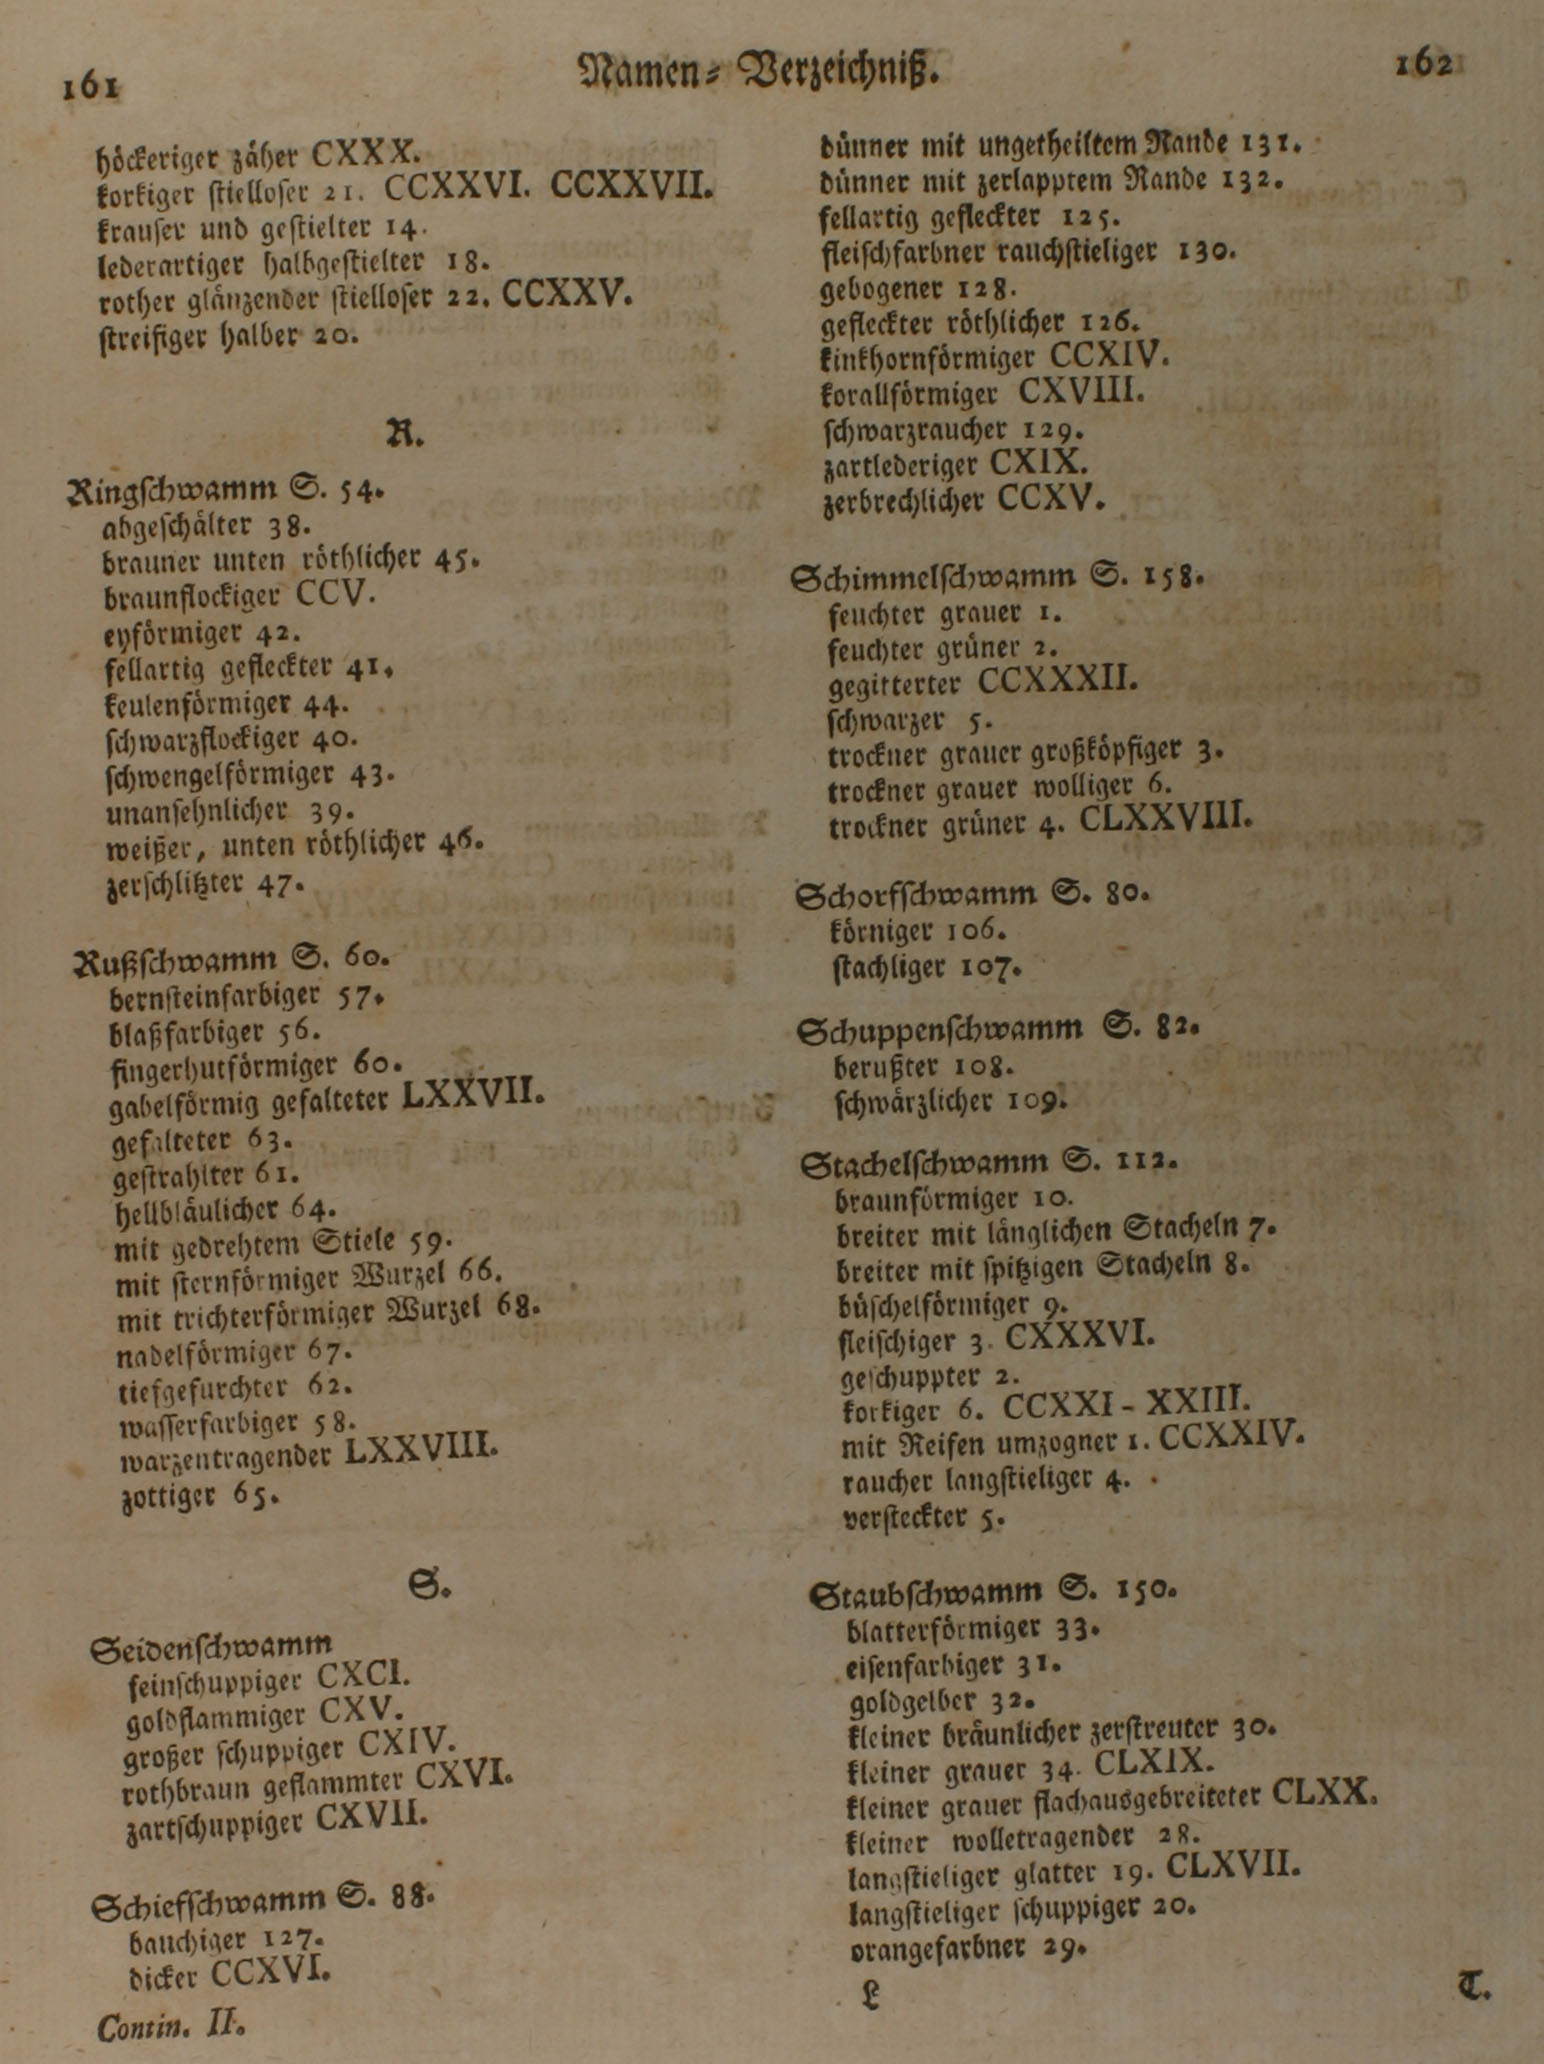 161
Namen-Verzeichniß.
162
höckeriger zäher CXXX.
korkiger stielloser 21. CCXXVI. CCXXVII.
krauser und gestielter 14.
lederartiger halbgestielter 18.
rother glänzender stielloser 22. CCXXV.
streifiger halber 20.
R.
Ringschwamm S. 54.
abgeschälter 38.
brauner unten röthlicher 45.
braunflockiger CCV.
eyförmiger 42.
fellartig gefleckter 41.
keulenförmiger 44.
schwarzflockiger 40.
schwengelförmiger 43.
unansehnlicher 39.
weißer, unten röthlicher 46.
zerschlitzter 47.
Rußschwamm S. 60.
bernsteinfarbiger 57.
blaßfarbiger 56.
fingerhutförmiger 60.
gabelförmig gefalteter LXXVII.
gefalteter 63.
gestrahlter 61.
hellbläulicher 64.
mit gedrehtem Stiele 59.
mit sternförmiger Wurzel 66.
mit trichterförmiger Wurzel 68.
nadelförmiger 67.
tiefgefurchter 62.
wasserfarbiger 58.
warzentragender LXXVIII.
zottiger 65.
S.
Seidenschwamm
feinschuppiger CXCI.
goldflammiger CXV.
großer schuppiger CXIV.
rothbraun geflammter CXVI.
zartschuppiger CXVII.
Schiefschwamm S. 88.
bauchiger 127.
dicker CCXVI.
Contin. II.
dünner mit ungetheiltem Rande 131.
dünner mit zerlapptem Rande 132.
fellartig gefleckter 125.
fleischfarbner rauchstieliger 130.
gebogener 128.
gefleckter röthlicher 126.
kinkhornförmiger CCXIV.
korallförmiger CXVIII.
schwarzraucher 129.
zartlederiger CXIX.
zerbrechlicher CCXV.
Schimmelschwamm S. 158.
feuchter grauer 1.
feuchter grüner 2.
gegitterter CCXXXII.
schwarzer 5.
trockner grauer großköpfiger 3.
trockner grauer wolliger 6.
trockner grüner 4. CLXXVIII.
Schorfschwamm S. 80.
körniger 106.
stachliger 107.
Schuppenschwamm S. 82.
berußter 108.
schwärzlicher 109.
Stachelschwamm S. 112.
braunförmiger 10.
breiter mit länglichen Stacheln 7.
breiter mit spitzigen Stacheln 8.
büschelförmiger 9.
fleischiger 3. CXXXVI.
geschuppter 2.
korkiger 6. CCXXI - XXIII.
mit Reifen umzogner 1. CCXXIV.
raucher langstieliger 4.
versteckter 5.
Staubschwamm S. 150.
blatterförmiger 33.
eisenfarbiger 31.
goldgelber 32.
kleiner bräunlicher zerstreuter 30.
kleiner grauer 34. CLXIX.
kleiner grauer flachausgebreiteter CLXX.
kleiner wolletragender 28.
langstieliger glatter 19. CLXVII.
langstieliger schuppiger 20.
orangefarbner 29.
L
T.